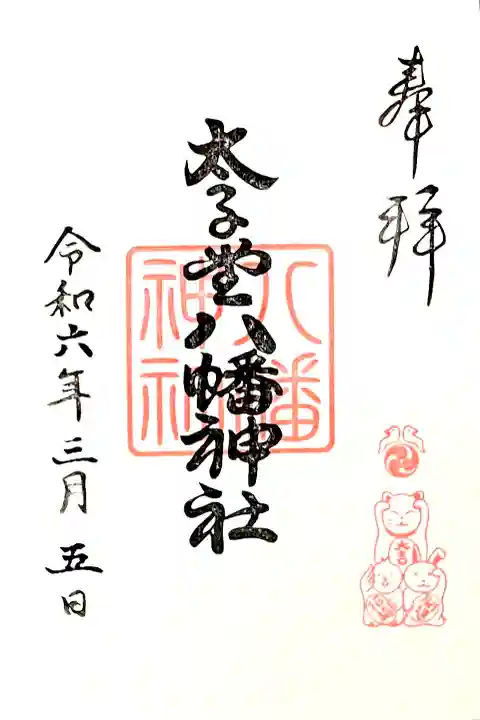 奉拝
太子堂八幡神社
八幡神社
令和六年三月五日